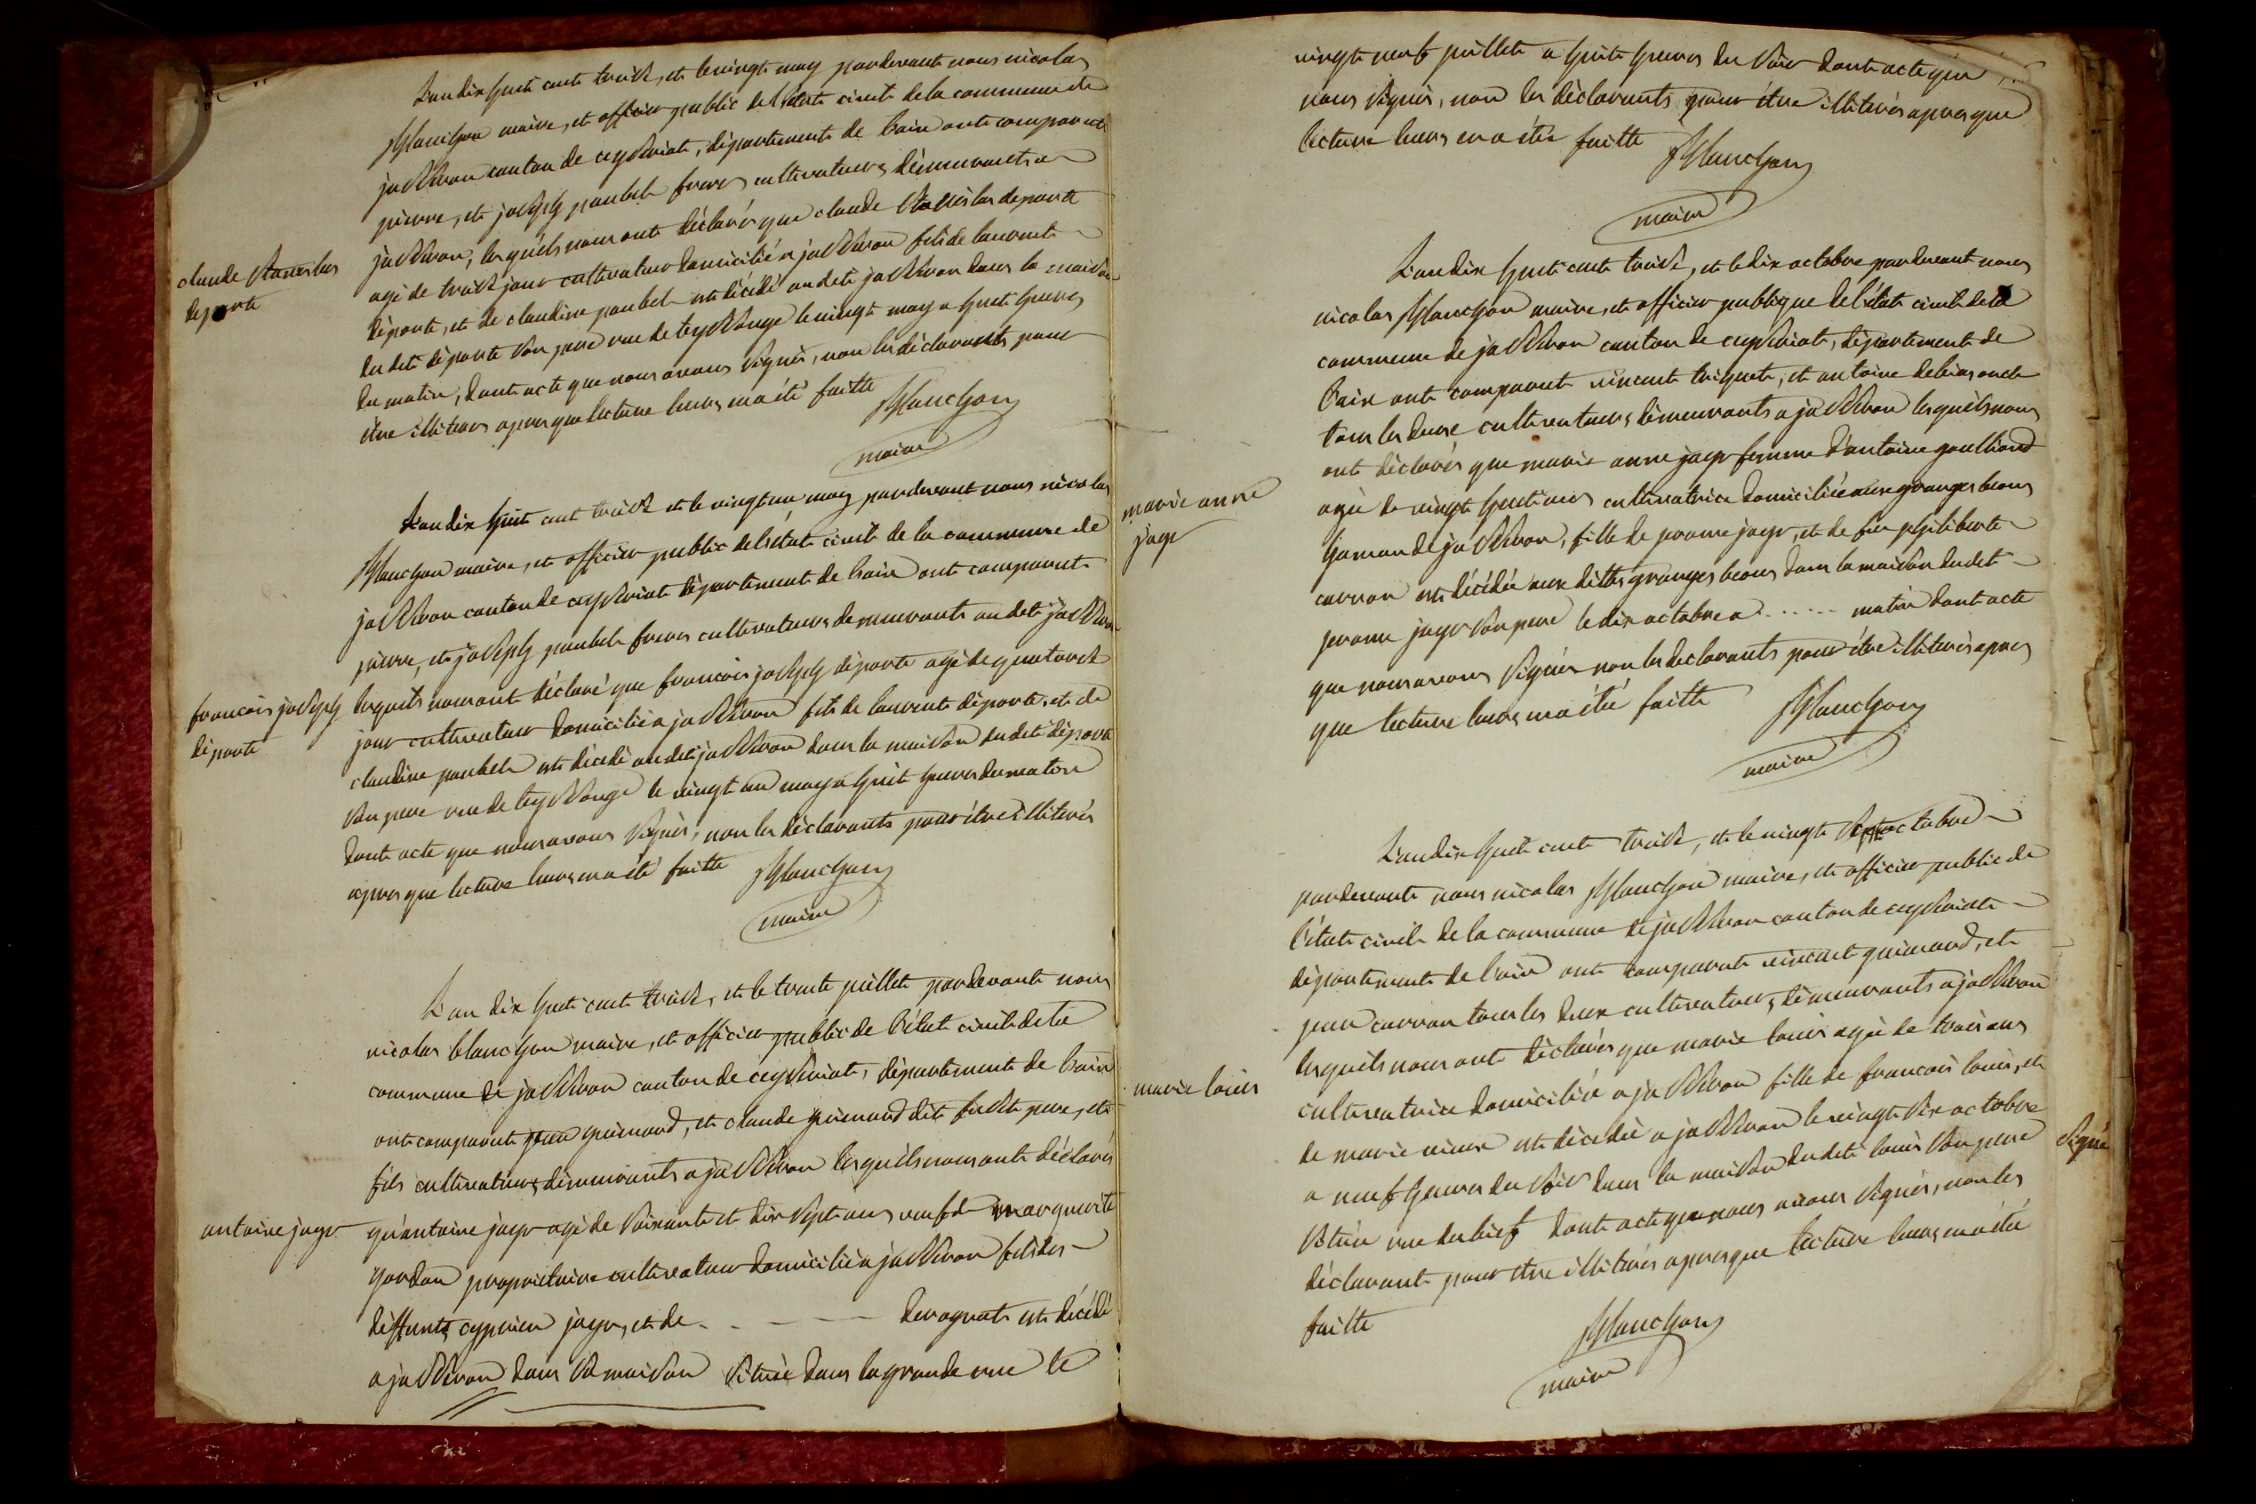 L'an dix huit cent treise, et le vingt may pardevant nous nicolas
Blanchon maire, et officier public de l'état civil de la commune de
jasseron canton de ceyseriat, département de l'ain ont comparut
pierre, et joseph paubel freres cultivateurs démeurants a
jasseron, lesquels nous ont déclarés que claude stanislas deporte
claude stanislas
deporte
agé de treise jour cultivateur domicilié a jasseron fils de laurent
déporte, et de claudine paubel est décédé au dit jasseron dans la maison
du dit déporte son pere rue de teyssonge le vingt may a huit heures
du matin, dont acte que nous avons signés, non les déclarants pour
être illiterés apres que lecture leurs en a été faitte Blanchon
maire
L'an dix huit cent treise et le vingt un may pardevant nous nicolas
Blanchon maire, et officier public de l'état civil de la commune de
jasseron canton de ceyseriat département de l'ain ont comparut
pierre, et joseph paubel freres cultivateurs demeurants au dit jasseron
françois joseph
déporte
lesquels nous ont déclaré que françois joseph déporte agé de quatorse
jour cultivateur domicilié a jasseron fils de laurent déporte, et de
claudine paubel est décédé au dit jasseron dans la maison du dit déporte
son pere rue de teyssonge le vingt un may a huit heures du matin
dont acte que nous avons signés, non les déclarants pour être illiterés
apres que lecture leurs en a été faitte Blanchon
maire
L'an dix huit cent treise, et le trente juillet pardevant nous
nicolas blanchon maire, et officier public de l'état civil de la
commune de jasseron canton de ceyseriat, département de l'ain
ont comparut jean guimand, et claude guimand dit pere, et
fils cultivateurs démeurants a jasseron lesquels nous ont déclarés
antoine jayr
qu'antoine jayr agé de soisante et dix sept ans veuf de marguerite
gordan propriétaire cultivateur domicilié a jasseron fils des
deffunts cyprien jayr, et de . . . — — devognat est décédé
a jasseron dans sa maison située dans la grande rue le
vingt neuf juillet a huit heures du soir dont acte que
nous signés, non les déclarants pour être illiterés apres que
lecture leurs en a étée faitte Blanchon
maire
L'an dix huit cent treise, et le dix octobre pardevant nous
nicolas Blanchon maire, et officier publique de l'état civil de la
commune de jasseron canton de ceyseriat, département de
l'ain ont comparut vincent triquet, et antoine debias oncle
tous les deux cultivateurs démeurants a jasseron lesquels nous
marie anne
jayr
ont déclarés que marie anne jayr femme d'antoine goulliond
agée de vingt huit ans cultivatrice domiciliée aux granges beons
hameau de jasseron, fille de jerome jayr, et de feu philiberte
carron est décédée aux dittes granges beons dans la maison du dit
jerome jayr son pere le dix octobre a . . . . . . matin dont acte
que nous avons signés non les declarants pour être illiterés apres
que lecture leurs en a été faitte Blanchon
maire
L'an dix huit cent treise, et le vingt sept octobre
pardevant nous nicolas Blanchon maire, et officier public de
l'état civil de la commune de jasseron canton de ceyseriat
département de l'ain ont comparut vincent guimand, et
jean carron tous les deux cultivateurs démeurants a jasseron
lesquels nous ont déclarés que marie louis agée de trois ans
marie louis
cultivatrice domiciliée a jasseron fille de françois louis, et
de marie est décédée a jasseron le vingt six octobre
a neuf heures du soir dans la maison du dit louis son pere
située rue du bief dont acte que nous avons signés, non les
déclarant pour être illiterés apres que lecture leurs en a été
faitte
Blanchon
maire